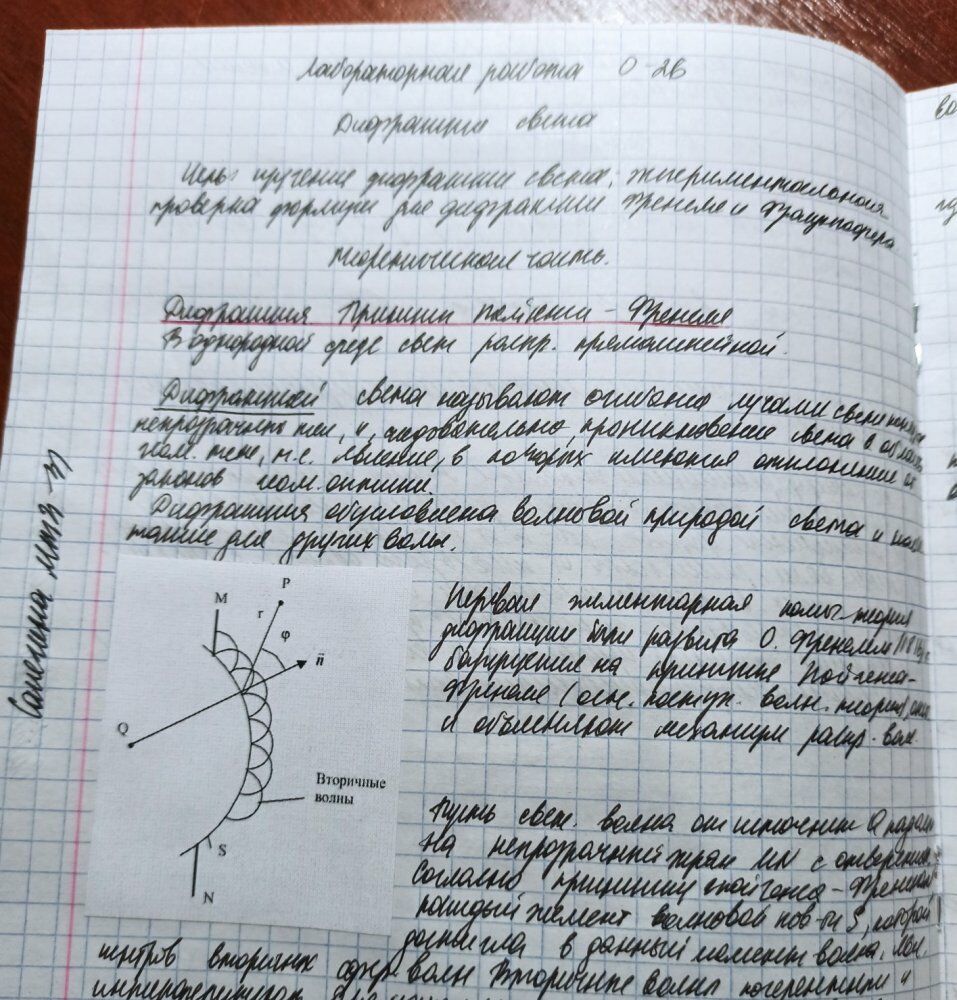 Лабораторная работа О-2в
Дифракция света
Цель: изучение дифракции света, экспериментальная
проверка формулы для дифракции Френеля и Фраунгофера.
Теоретическая часть.
Дифракция Принцип Гюйгенса - Френеля
В однородной среде свет распр. прямолинейной.
Дифракцией света называют огибание лучами света
непрозрачных тел, и, следовательно, проникновение света в область
геом. тени, т.е. явление, в которых имеются отклонение от
законов геом. оптики.
Дифракция обусловлена волновой природой света и
также для других волн.
Самсонова
M
P
r
φ
n̄
Q
Вторичные
волны
S
N
Первая элементарная теория
дифракции была развита О. Френелем
базируясь на принципе Гюйгенса-
Френеля (осн. постул. волн. теории),
и объясняют механизм распр. волн
Пусть свет. волна от источник Q падает
На непрозрачный экран MN с отверстием
Согласно принципу Гюйгенса - Френеля
каждый элемент волновой пов-ти S, которой
достигла в данный момент волна,
центров вторичных сфер. волн Вторичные волны когерентны и